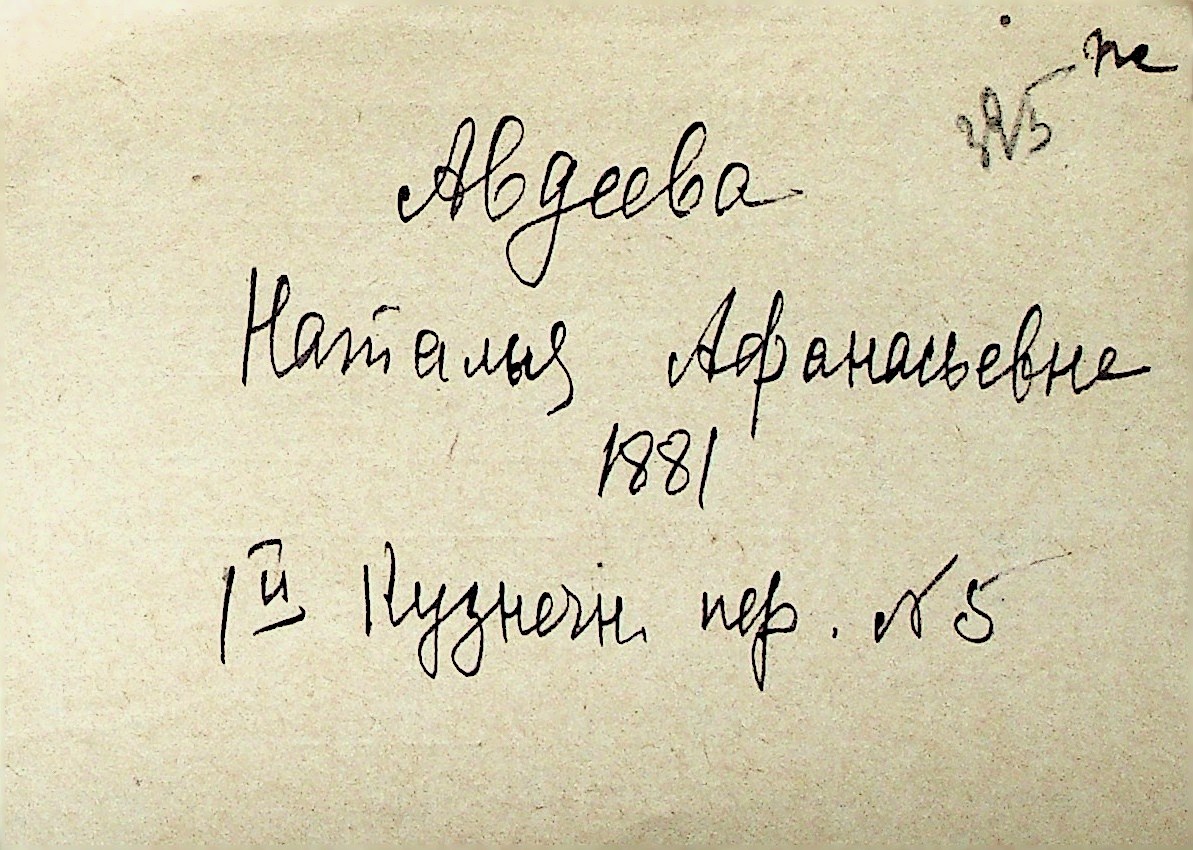 Авдеева
Наталья Афанасьевна
1881
1й Кузнечн. пер. № 5